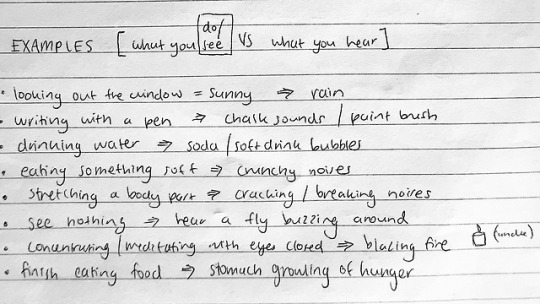 do/
EXAMPLES [what you see VS what you hear]
• looking out the window = sunny ⇒ rain
• writing with a pen ⇒ chalk sounds / paint brush
• drinking water ⇒ soda / soft drink bubbles
• eating something soft ⇒ crunchy noises
• stretching a body part ⇒ cracking / breaking noises
• see nothing ⇒ hear a fly buzzing around
• concentrating / meditating with eyes closed ⇒ blazing fire
• finish eating food ⇒ stomach growling of hunger